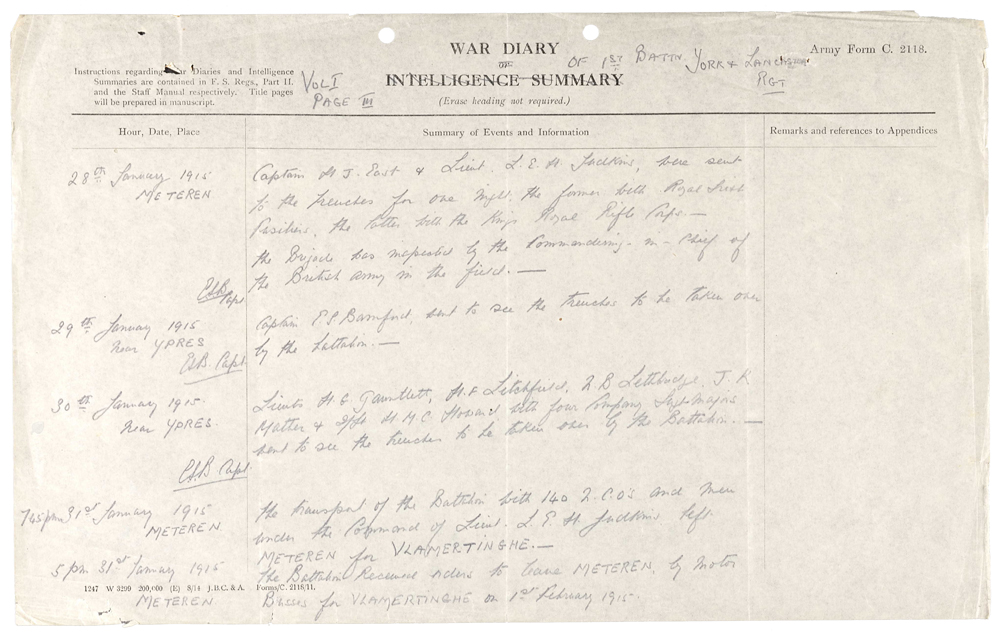 WAR DIARY
or
INTELLIGENCE SUMMARY
(Erase heading not required.)
OF 1ST BATTN. YORK & LANCASTER
RGT
Army Form C. 2118.
Instructions regarding War Diaries and Intelligence
Summaries are contained in F. S. Regs., Part II.
and the Staff Manual respectively. Title pages
will be prepared in manuscript.
VOL I
PAGE III
Hour, Date, Place
Summary of Events and Information
Remarks and references to Appendices
28th January 1915
METEREN
Captain H J. East & Lieut. L. E. H. Judkins, were sent
to the trenches for one night, the former with Royal Irish
Fusiliers, the latter with the Kings Royal Rifle Corps.—
the Brigade was inspected by the Commanding-in-Chief of
the British army in the field.—
ESB
Capt
29th January 1915
Near YPRES
Captain E S Bamford, sent to see the trenches to be taken over
by the battalion.—
ESB. Capt.
30th January 1915.
Near YPRES.
Lieuts H. G. Gauntlett, H. F Litchfield, 2. B Lethbridge, J. K
Matter & H. M. C. Howard with four Company Sergt Majors
sent to see the trenches to be taken over by the Battalion.—
ESB Capt
7.45 pm 31st January 1915
METEREN
the transport of the Battalion with 140 N.C.O's and Men
under the Command of Lieut. L. E. H. Judkins left
METEREN for VLAMERTINGHE.—
5 pm 31st January 1915
METEREN
the Battalion Received orders to leave METEREN, by Motor
Busses for VLAMERTINGHE on 1st February 1915.
1247 W 3299 200,000 (E) 8/14 J.B.C. & A. Forms/C. 2118/11.